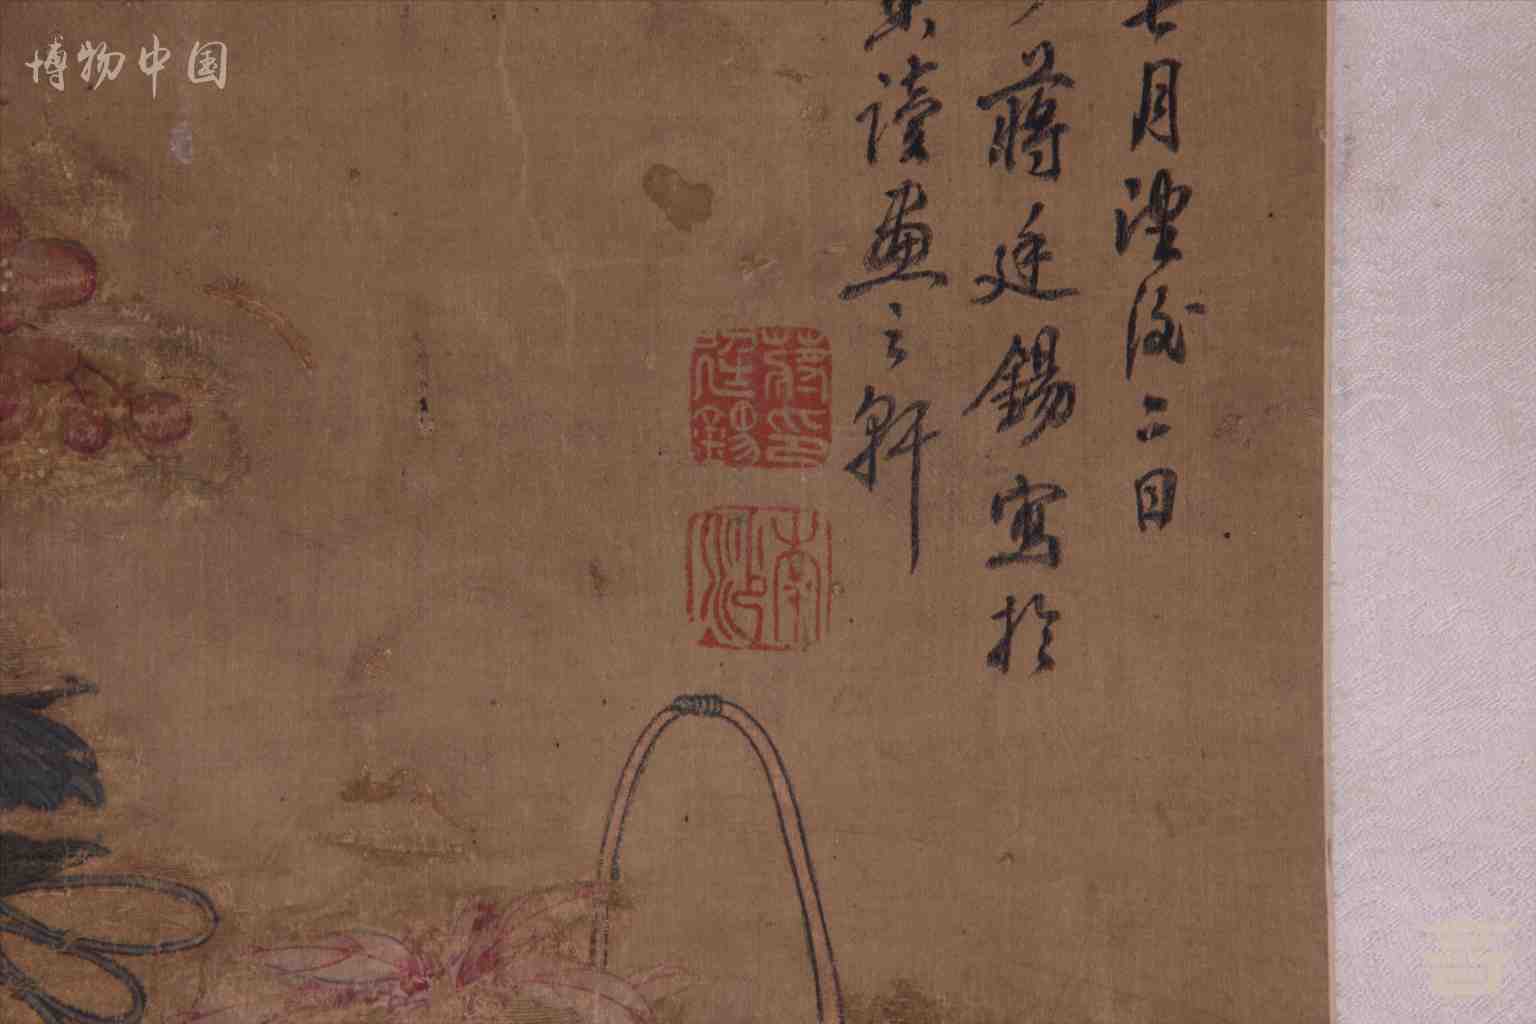 博物中国
七月望後二日
蔣廷錫寫於
讀畫之軒
蔣廷錫印
南沙